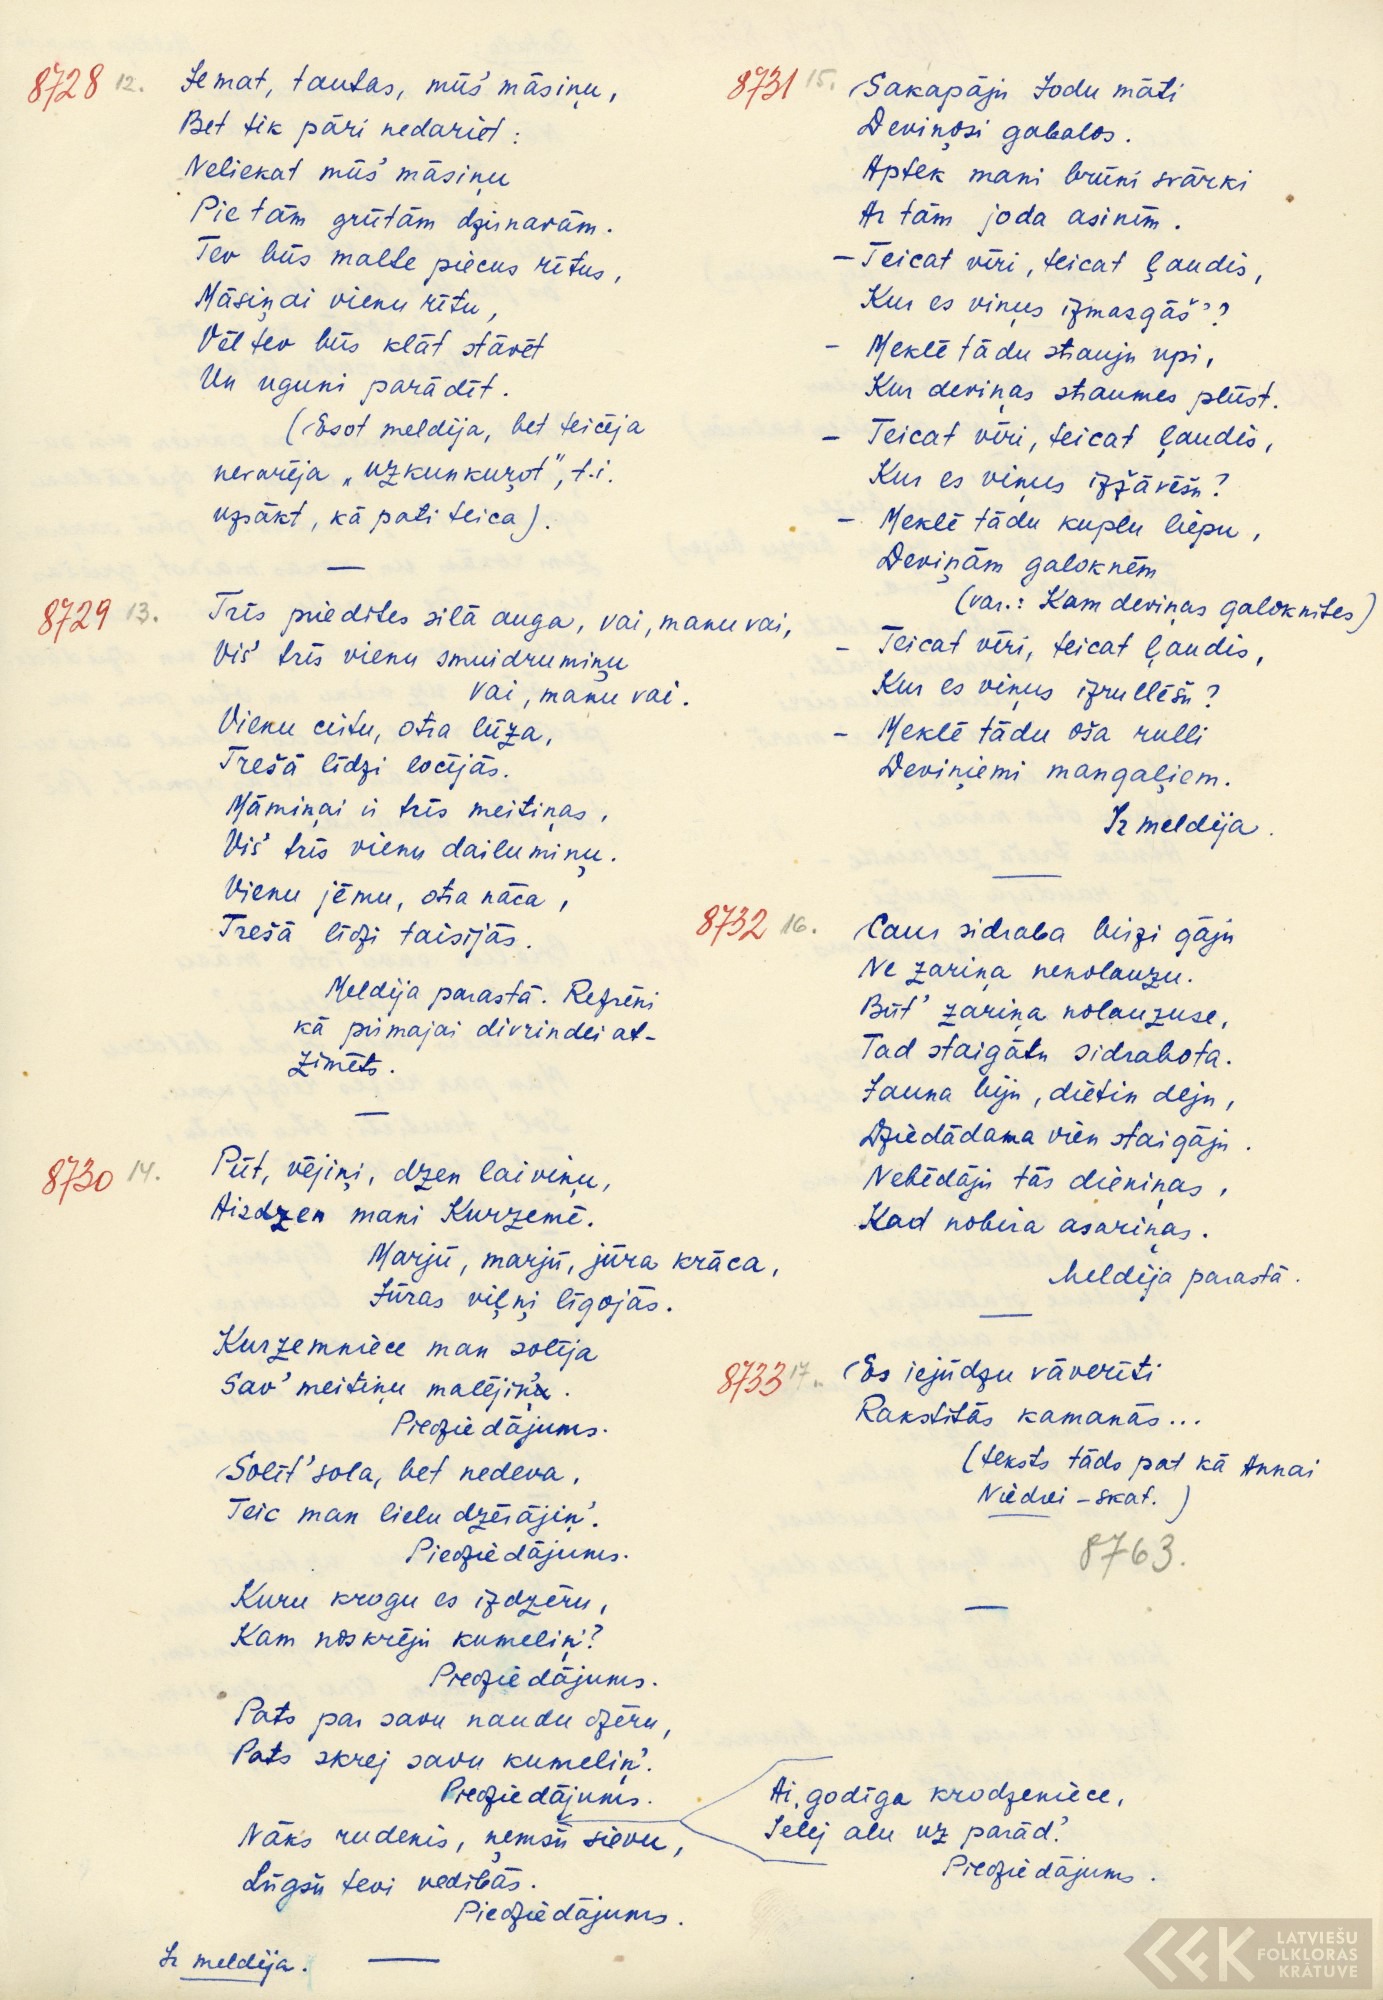 8728 12. Jemat, tautas, mūs' māsiņu,
Bet tik pāri nedariet:
Neliekat mūs' māsiņu
Pie tām grūtām dzirnavām.
Tev būs malte piecus rītus,
Māsiņai vienu rītu,
Vēl tev būs klāt stāvēt
Un uguni parādīt.
(Esot meldija, bet teicēja
nevarēja „uzkunkuļot", t.i.
uzsākt, kā pati teica).
8729 13. Trīs priedītes silā auga, vai, manu vai,
Vis' trīs vienu smuidrumiņu
vai, manu vai.
Vienu cirtu, otra lūza,
Trešā līdzi locījās.
Māmiņai ir trīs meitiņas,
Vis' trīs vienu dailumiņu.
Vienu jēmu, otra nāca,
Trešā līdzi taisījās.
Meldija parastā. Refrēni
kā pirmajai divrindei at-
zīmēts.
8730 14. Pūt, vējiņi, dzen laiviņu,
Aizdzen mani Kurzemē.
Marjū, marjū, jūra krāca,
Jūras viļņi līgojās.
Kurzemniece man solīja
Sav' meitiņu malējiņu.
Piedziedājums.
Solīt' sola, bet nedeva,
Teic man lielu dzērājiņ'.
Piedziedājums.
Kuru krogu es izdzēru,
Kam noskrēju kumeliņ'?
Piedziedājums.
Pats par savu naudu dzēru,
Pats skrej savu kumeliņ'.
Piedziedājums.
Nāks rudenis, ņemšu sievu,
Lūgšu tevi vedībās.
Piedziedājums.
Ir meldija.
8731 15. Sakapāju Jodu māti
Deviņosi gabalos.
Aptek mani brūni svārki
Ar tām joda asinīm.
- Teicat vīri, teicat ļaudis,
Kur es viņus izmazgāš'?
- Meklē tādu strauju upi,
Kur deviņas straumes plūst.
- Teicat vīri, teicat ļaudis,
Kur es viņus izžāvēšu?
- Meklē tādu kuplu liepu,
Deviņām galoknēm
(var.: Kam deviņas galoknītes)
- Teicat vīri, teicat ļaudis,
Kur es viņus izrullēšu?
- Meklē tādu oša rulli
Deviņiemi mangaļiem.
Ir meldija.
8732 16. Caur sidraba birzi gāju
Ne zariņa nenolauzu.
Būt' zariņa nolauzuse,
Tad staigātu sidrabota.
Jauna biju, dietin deju,
Dziedādama vien staigāju.
Nebēdāju tās dieniņas,
Kad nobira asariņas.
Meldija parastā.
8733 17. Es iejūdzu vāverīti
Rakstītās kamanās...
(teksts tāds pat kā Annai
Niedrei - skat.)
8763.
Ai, godīga krodzeniece,
Ielej alu uz parād'.
Piedziedājums.
LATVIEŠU
FOLKLORAS
KRĀTUVE